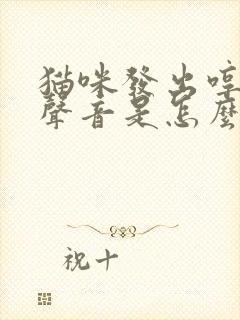 猫咪發出哼
聲音是怎麼
祝十